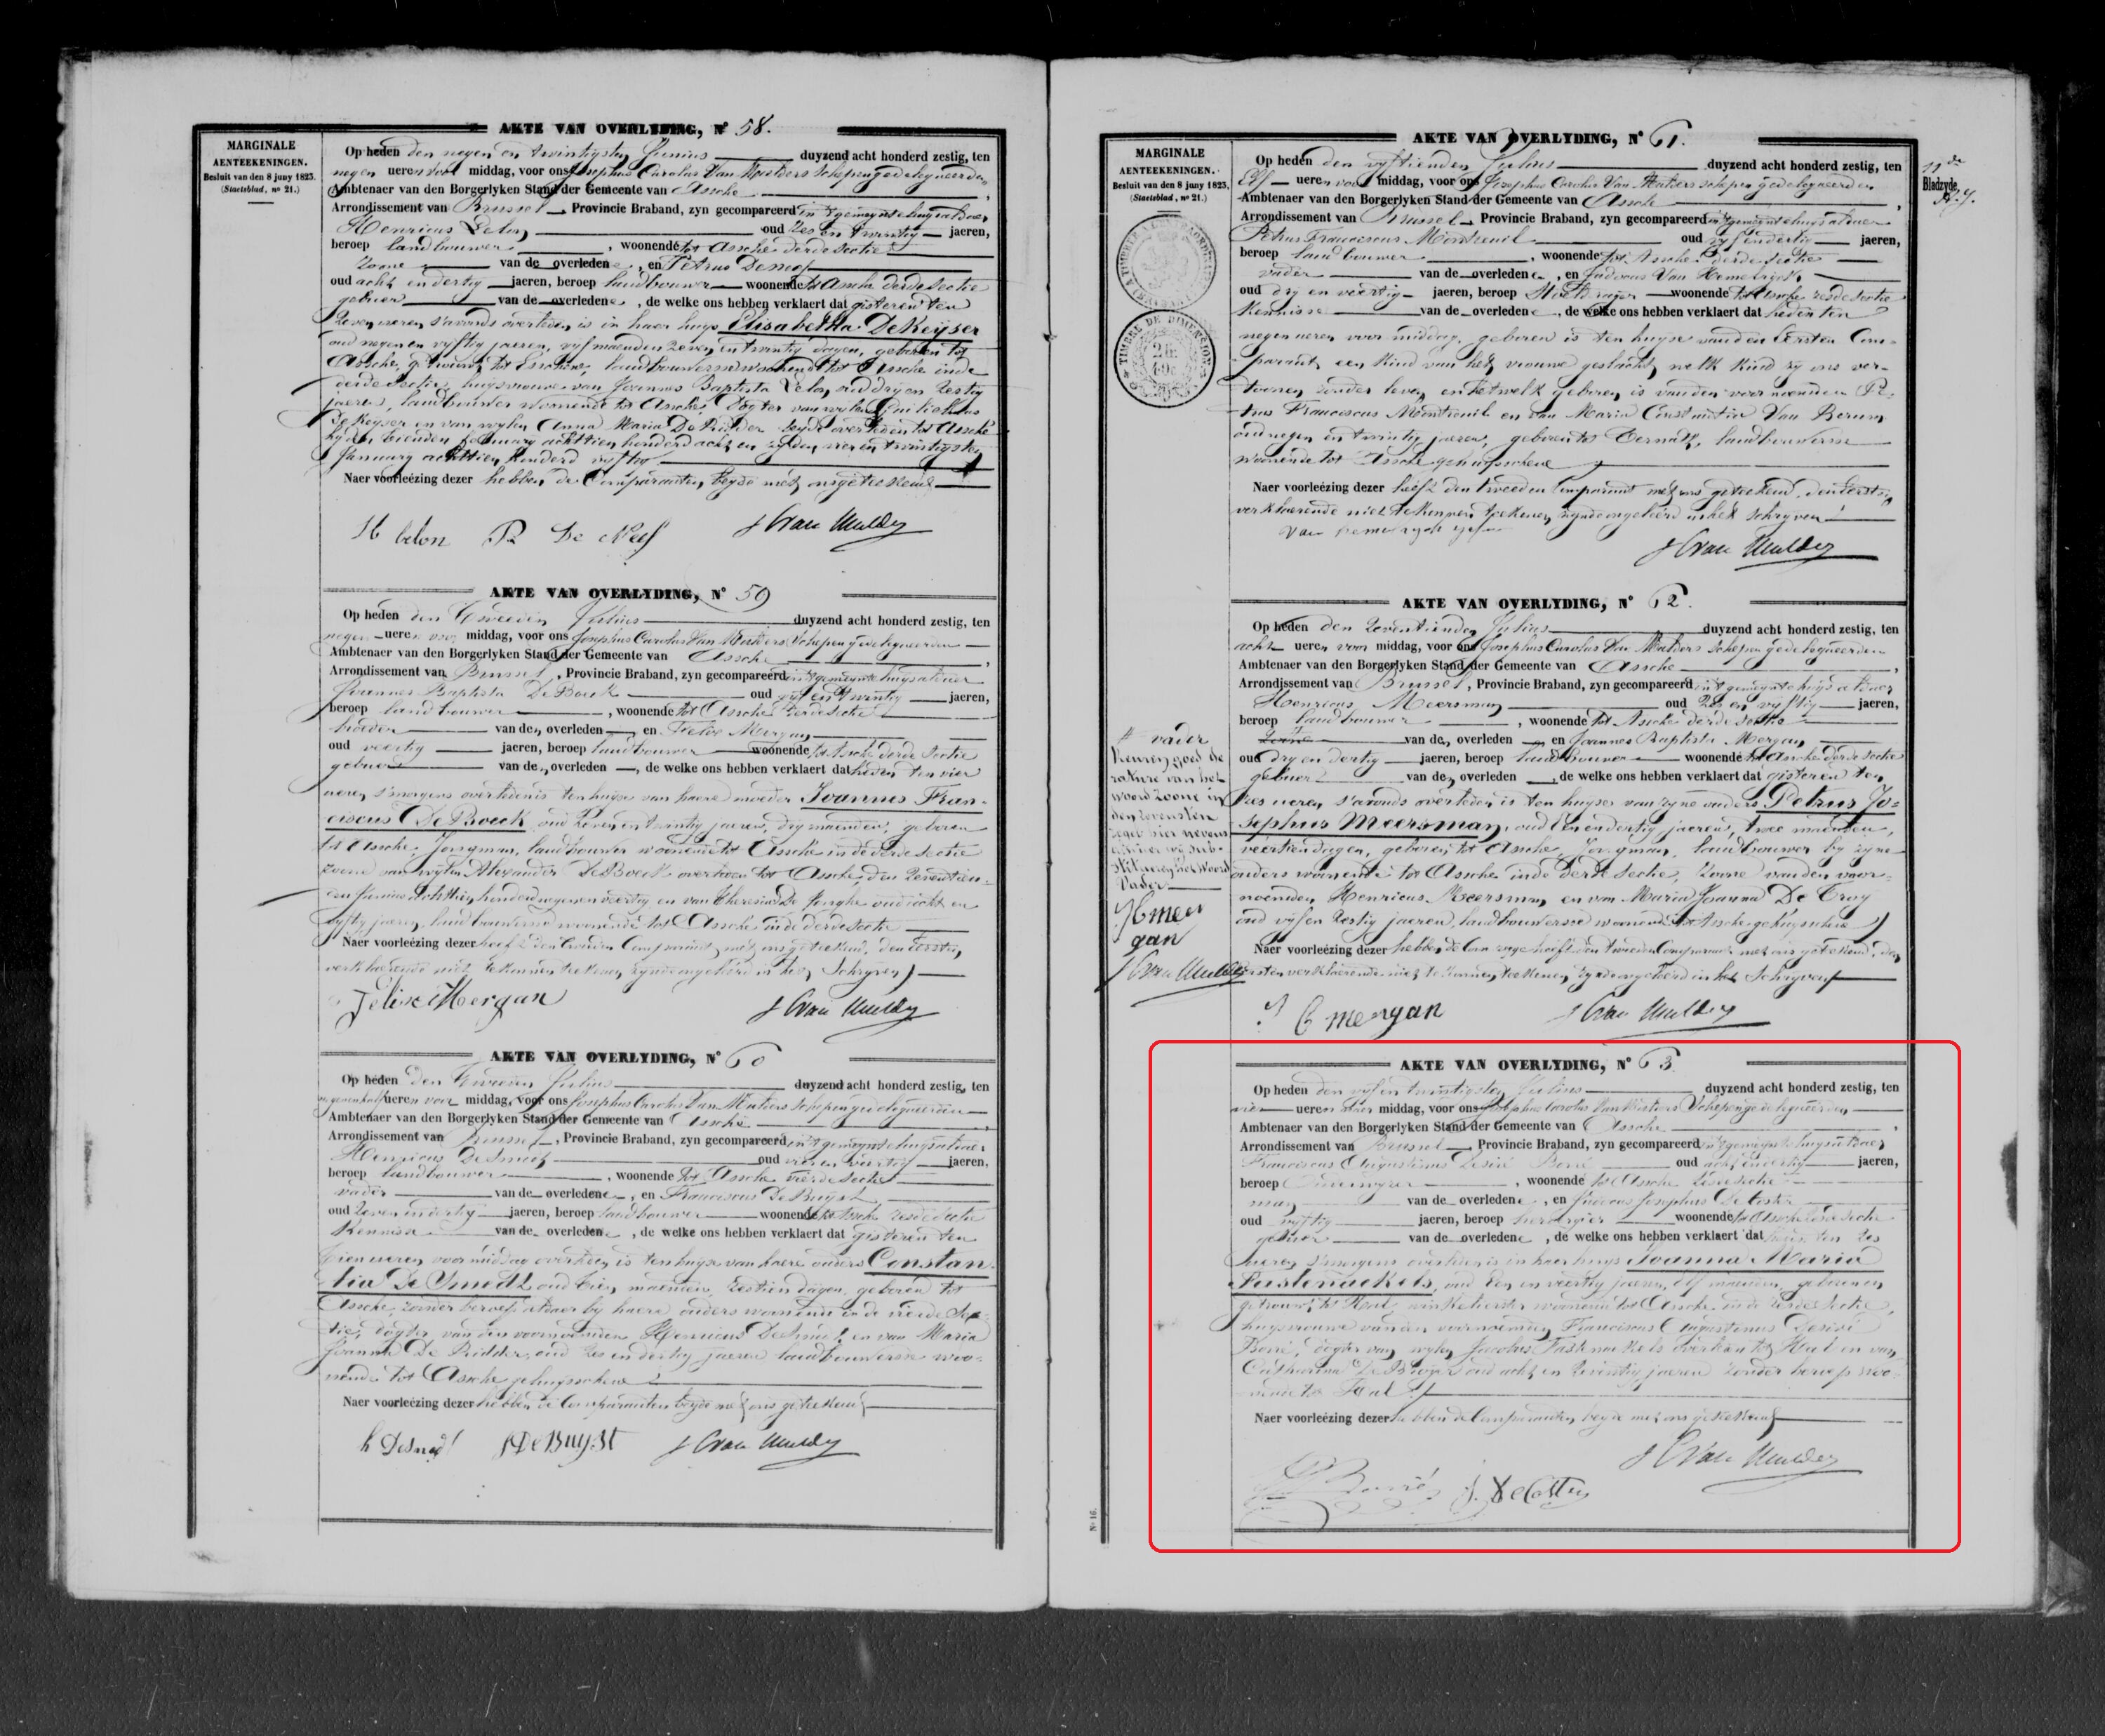 AKTE VAN OVERLYDING, N° 58.
MARGINALE
AENTEEKENINGEN.
Besluit van den 8 juny 1823.
(Staetsblad, n° 21.)
Op heden den negen en twintigsten Junius duyzend acht honderd zestig, ten
negen ueren voor middag, voor ons Josephus Carolus Van Mulders Schepen gedelegueerden
Ambtenaer van den Borgerlyken Stand der Gemeente van Assche,
Arrondissement van Brussel, Provincie Braband, zyn gecompareerd in 't gemeynte huys aldaer
Henricus Lelon oud zes en twintig jaeren,
beroep landbouwer, woonende tot Assche derde sectie
zoone van de overledene, en Petrus Deneef
oud acht en dertig jaeren, beroep landbouwer woonende tot Assche derde sectie
gebuer van de overledene, de welke ons hebben verklaert dat gisteren ten
zeven ueren s'avonds overleden is in haer huys Elisabetha De Keyser
oud negen en vyftig jaeren, vyf maenden zeven en twintig dagen, geboren tot
Assche, getrouwd tot Esschene, landbouwersse woonende tot Assche in de
derde sectie, huysvrouwe van Joannes Baptista Lelon, oud dry en zestig
jaeren, landbouwer woonende tot Assche, dogter van wylen Guilielmus
De Keyser en van wylen Anna Maria De Ridder beyde overleden tot Assche
hy den tienden February achttien honderd acht en zy den vier en twintigsten
January achttien honderd vyftig
Naer voorleézing dezer hebben de Comparanten beyde met ons geteekend
H lelon P De Neef J C Van Mulders
AKTE VAN OVERLYDING, N° 59
Op heden den tweeden Julius duyzend acht honderd zestig, ten
negen ueren voor middag, voor ons Josephus Carolus Van Mulders Schepen gedelegueerden
Ambtenaer van den Borgerlyken Stand der Gemeente van Assche,
Arrondissement van Brussel, Provincie Braband, zyn gecompareerd in 't gemeynte huys aldaer
Joannes Baptista De Boeck oud vyf en twintig jaeren,
beroep landbouwer, woonende tot Assche derde sectie
broeder van den overleden, en Felix Mergan
oud veertig jaeren, beroep landbouwer woonende tot Assche derde sectie
gebuer van den overleden, de welke ons hebben verklaert dat heden ten vier
ueren s'morgens overleden is ten huyse van haere moeder Joannes Fran-
ciscus De Boeck oud zeven en twintig jaeren, dry maenden, geboren
tot Assche, Jongman, landbouwer woonende tot Assche in de derde sectie
zoone van wylen Alexander De Boeck overleden tot Assche, den zeventien-
den Junius achttien honderd negen en veertig en van Theresia De Jonghe oud acht en
vyftig jaeren, landbouwersse woonende tot Assche in de derde sectie
Naer voorleézing dezer heeft den tweeden Comparant met ons geteekend, den Eersten
verklaerende niet te konnen teekenen zynde ongeleerd in het Schryven
Felix Mergan J C Van Mulders
AKTE VAN OVERLYDING, N° 60
Op heden den tweeden Julius duyzend acht honderd zestig, ten
negen en half ueren voor middag, voor ons Josephus Carolus Van Mulders Schepen gedelegueerden
Ambtenaer van den Borgerlyken Stand der Gemeente van Assche,
Arrondissement van Brussel, Provincie Braband, zyn gecompareerd in 't gemeynte huys aldaer
Henricus De Smedt oud vier en veertig jaeren,
beroep landbouwer, woonende tot Assche vierde sectie
vader van de overledene, en Franciscus De Buyst
oud zeven en dertig jaeren, beroep landbouwer woonende tot Assche zesde sectie
Kennisse van de overledene, de welke ons hebben verklaert dat gisteren ten
tien ueren voor middag overleden is ten huyse van haere ouders Constan-
tia De Smedt oud tien maenden, zestien dagen, geboren tot
Assche, zonder beroep aldaer by haere ouders woonende in de vierde Sec-
tie, dogter van den voornoemden Henricus De Smedt, en van Maria
Joanna De Ridder, oud zes en dertig jaeren landbouwersse woo-
nende tot Assche gehuysschene
Naer voorleézing dezer hebben de Comparanten beyde met ons geteekend
h Desmedt J De Buyst J C Van Mulders
AKTE VAN OVERLYDING, N° 61.
MARGINALE
AENTEEKENINGEN.
Besluit van den 8 juny 1823.
(Staetsblad, n° 21.)
11de
Bladzyde
TIMBRE DE DIMENSION
Op heden den vyftienden Julius duyzend acht honderd zestig, ten
Elf ueren voor middag, voor ons Josephus Carolus Van Mulders schepen gedelegueerden
Ambtenaer van den Borgerlyken Stand der Gemeente van Assche,
Arrondissement van Brussel, Provincie Braband, zyn gecompareerd in 't gemeynte huys aldaer
Petrus Franciscus Montreuil oud vyf en dertig jaeren,
beroep landbouwer, woonende tot Assche derde sectie
vader van de overledene, en Judocus Van Hemelryck
oud dry en veertig jaeren, beroep woonende tot Assche zesde sectie
Kennisse van de overledene, de welke ons hebben verklaert dat heden ten
negen ueren voor middag, geboren is ten huyse van den Eersten Com-
parant, een Kind van het vrouwe geslacht welk Kind zy ons ver-
toonen zonder leven en hetwelk geboren is van den voornoemden Pe-
trus Franciscus Montreuil en van Maria Constantia Van
oud negen en twintig jaeren, geboren tot Ternath, landbouwersse
woonende tot Assche gehuysschene
Naer voorleézing dezer heeft den tweeden Comparant met ons geteekend, den Eersten
verklaerende niet te konnen teekenen zynde ongeleerd in het schryven
van hemelryck J C Van Mulders
AKTE VAN OVERLYDING, N° 62.
Op heden den zeventienden Julius duyzend acht honderd zestig, ten
acht ueren voor middag, voor ons Josephus Carolus Van Mulders Schepen gedelegueerden
Ambtenaer van den Borgerlyken Stand der Gemeente van Assche,
Arrondissement van Brussel, Provincie Braband, zyn gecompareerd in 't gemeynte huys aldaer
Henricus Meersman oud zes en vyftig jaeren,
beroep landbouwer, woonende tot Assche derde sectie
zoone van den overleden en Joannes Baptista Mergan
oud dry en dertig jaeren, beroep landbouwer woonende tot Assche derde sectie
gebuer van den overleden, de welke ons hebben verklaert dat gisteren ten
zes ueren s'avonds overleden is ten huyse van zyne ouders Petrus Jo-
sephus Meersman, oud een en dertig jaeren, twee maenden,
veertien dagen, geboren tot Assche, Jongman, landbouwer by zyne
ouders woonende tot Assche in de derde Sectie, zoone van den voor-
noemden Henricus Meersman en van Maria Joanna De Troy
oud vyf en zestig jaeren, landbouwersse woonende tot Assche gehuysschene
Naer voorleézing dezer heeft den tweeden Comparant met ons geteekend, den
Eersten verklaerende niet te konnen teekenen zynde ongeleerd in het Schryven
# vader
Keuren goed de
rature van het
woord zoone in
den zevensten
regel hier nevens
Vader
JB mer
gan
J C Van Mulders
J B mergan J C Van Mulders
AKTE VAN OVERLYDING, N° 63.
Op heden den vyf en twintigsten Julius duyzend acht honderd zestig, ten
vier ueren naer middag, voor ons Josephus Carolus Van Mulders Schepen gedelegueerden
Ambtenaer van den Borgerlyken Stand der Gemeente van Assche,
Arrondissement van Brussel, Provincie Braband, zyn gecompareerd in 't gemeynte huys aldaer
Franciscus Augustinus Desiré Borré oud acht en dertig jaeren,
beroep, woonende tot Assche zesde sectie
man van de overledene, en Judocus Josephus De Coster
oud vyftig jaeren, beroep herbergier woonende tot Assche zesde sectie
gebuer van de overledene, de welke ons hebben verklaert dat heden ten zes
ueren s'morgens overleden is in haer huys Joanna Maria
Pastenaekels, oud een en veertig jaeren, elf maenden, geboren en
getrouwd tot Hal, winkelierster woonende tot Assche in de zesde sectie,
huysvrouwe van den voornoemden Franciscus Augustinus Desiré
Borré, dogter van wylen Jacobus Pastenaekels overleden tot Hal en van
Catharina De oud acht en zeventig jaeren zonder beroep woo-
nende te Hal
Naer voorleézing dezer hebben de Comparanten beyde met ons geteekend
Borré J. De Coster J C Van Mulders
N° 16.